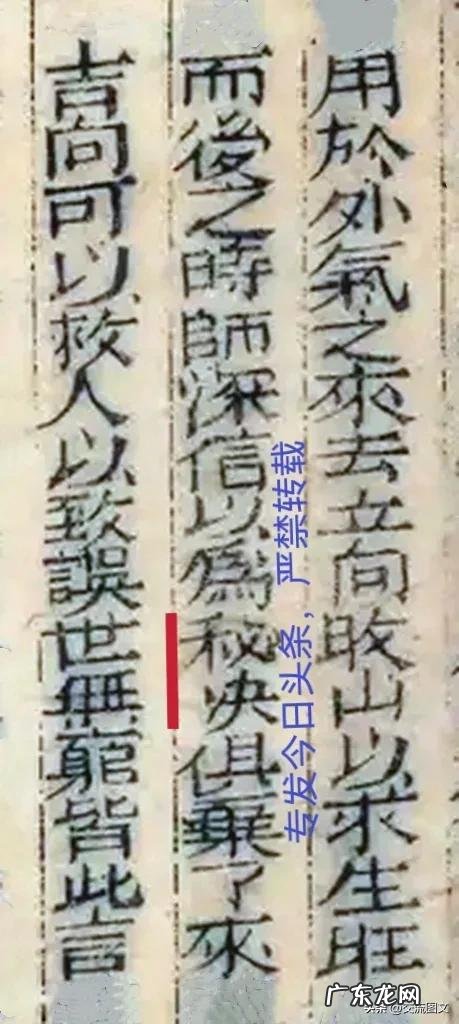 用於外氣之來去立向收山以求生旺
而後之時師深信以爲秘决俱棄了來
吉向可以救人以致誤世無窮皆此言
专发今日头条，严禁转载
广东龙网